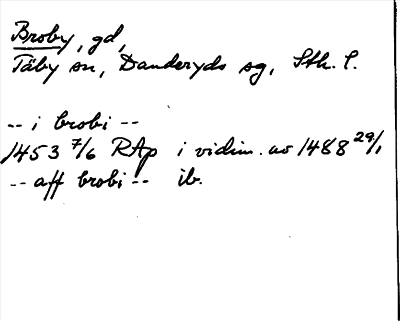 Broby, gd,
Täby sn, Danderyds sg, Sth. l.
-- i brobi --
1453 7/6 RAp i vidim. av 1488 29/1
-- aff brobi -- ib.